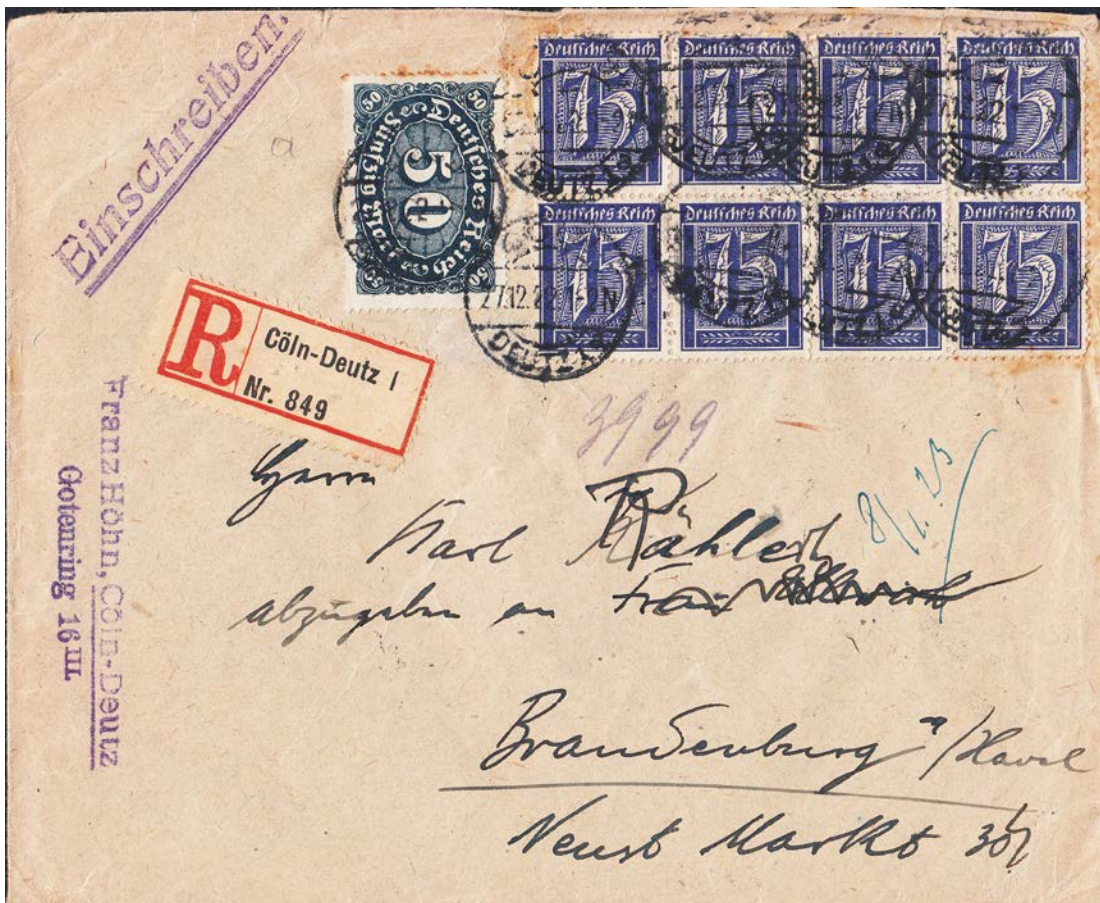 Einschreiben.
a
50 50
Deutsches Reich
50
Fünfzig Mark
50 50
Deutsches Reich Deutsches Reich Deutsches Reich Deutsches Reich
75 75 75 75
Deutsches Reich Deutsches Reich Deutsches Reich Deutsches Reich
75 75 75 75
27.12.22 N
DEUTZ
R
Cöln-Deutz 1
Nr. 849
Franz Höhn, Cöln-Deutz
Gotenring 16 III.
3999
8/1.23
Herrn
Karl
abzugeben an Frau
Brandenburg a/Havel
Neust Markt